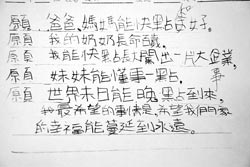 願爸爸、媽媽能快點和好。
願我的奶奶長命百歲。
願我能快點長大闖出一片大企業,
願妹妹能懂事一點,
願世界末日能晚點到來,
我最希望的事是,希望我們家
的幸福能蔓延到永遠。